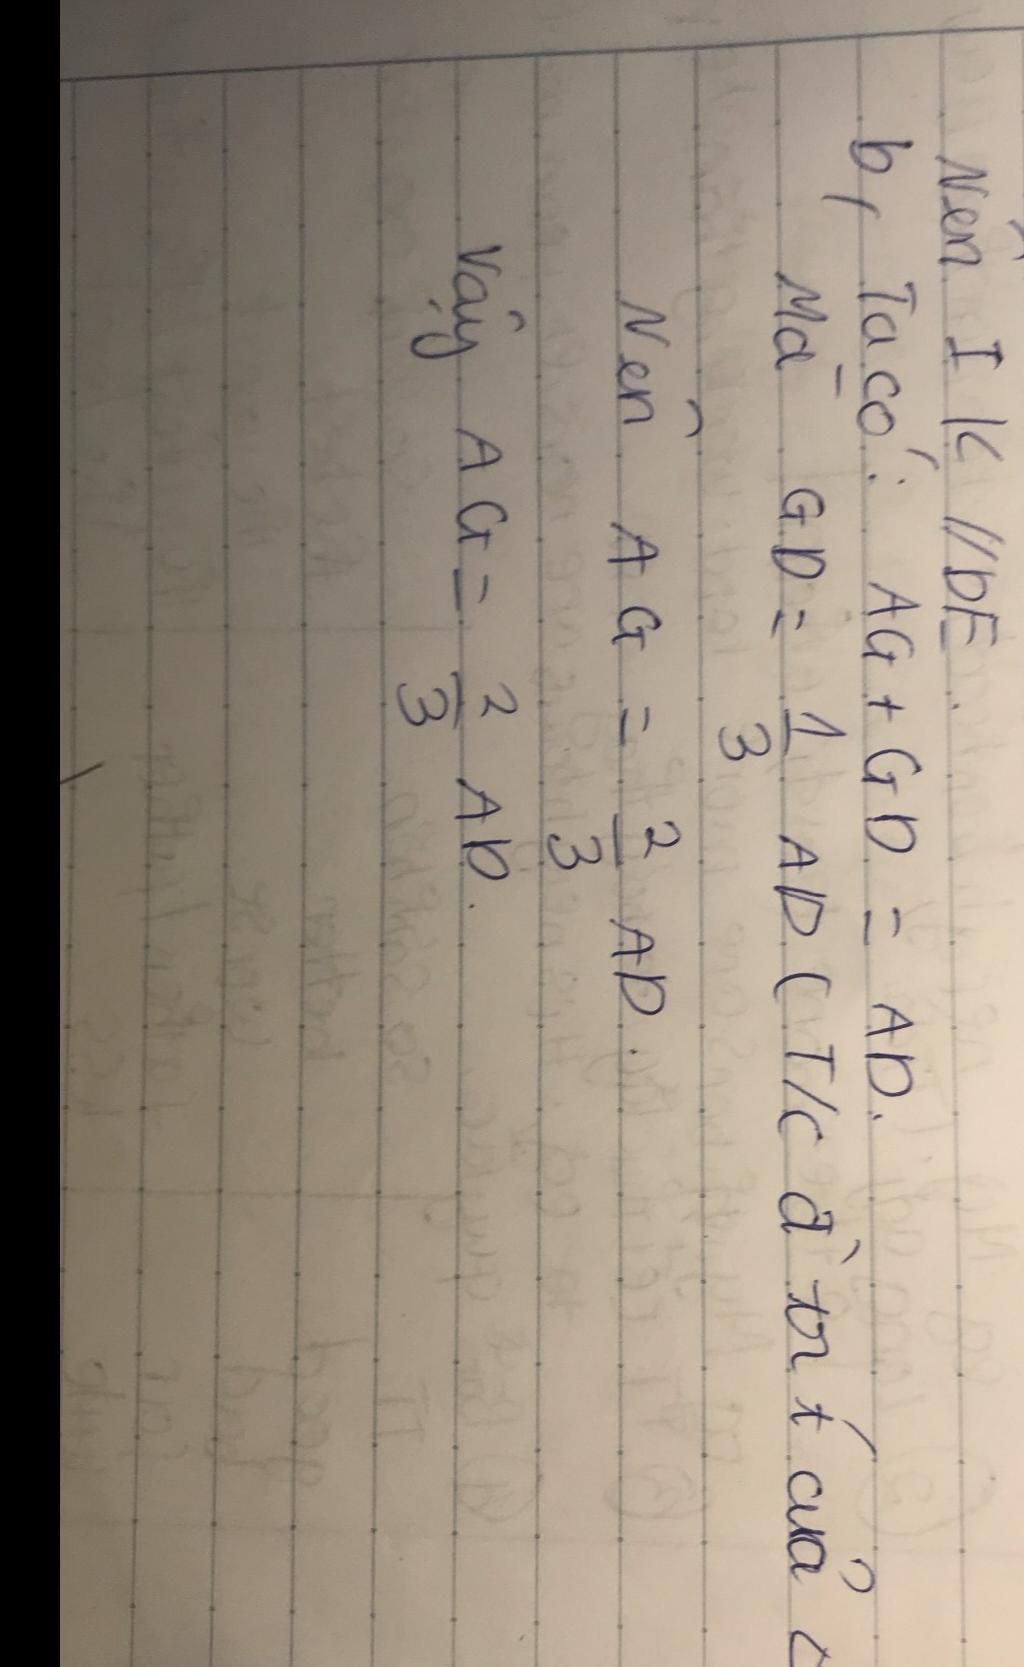 Nên IK // DE.
b, Ta có: AG + GD = AD.
Mà GD = 1/3 AD (T/c
Nên AG = 2/3 AD.
Vậy AG = 2/3 AD.